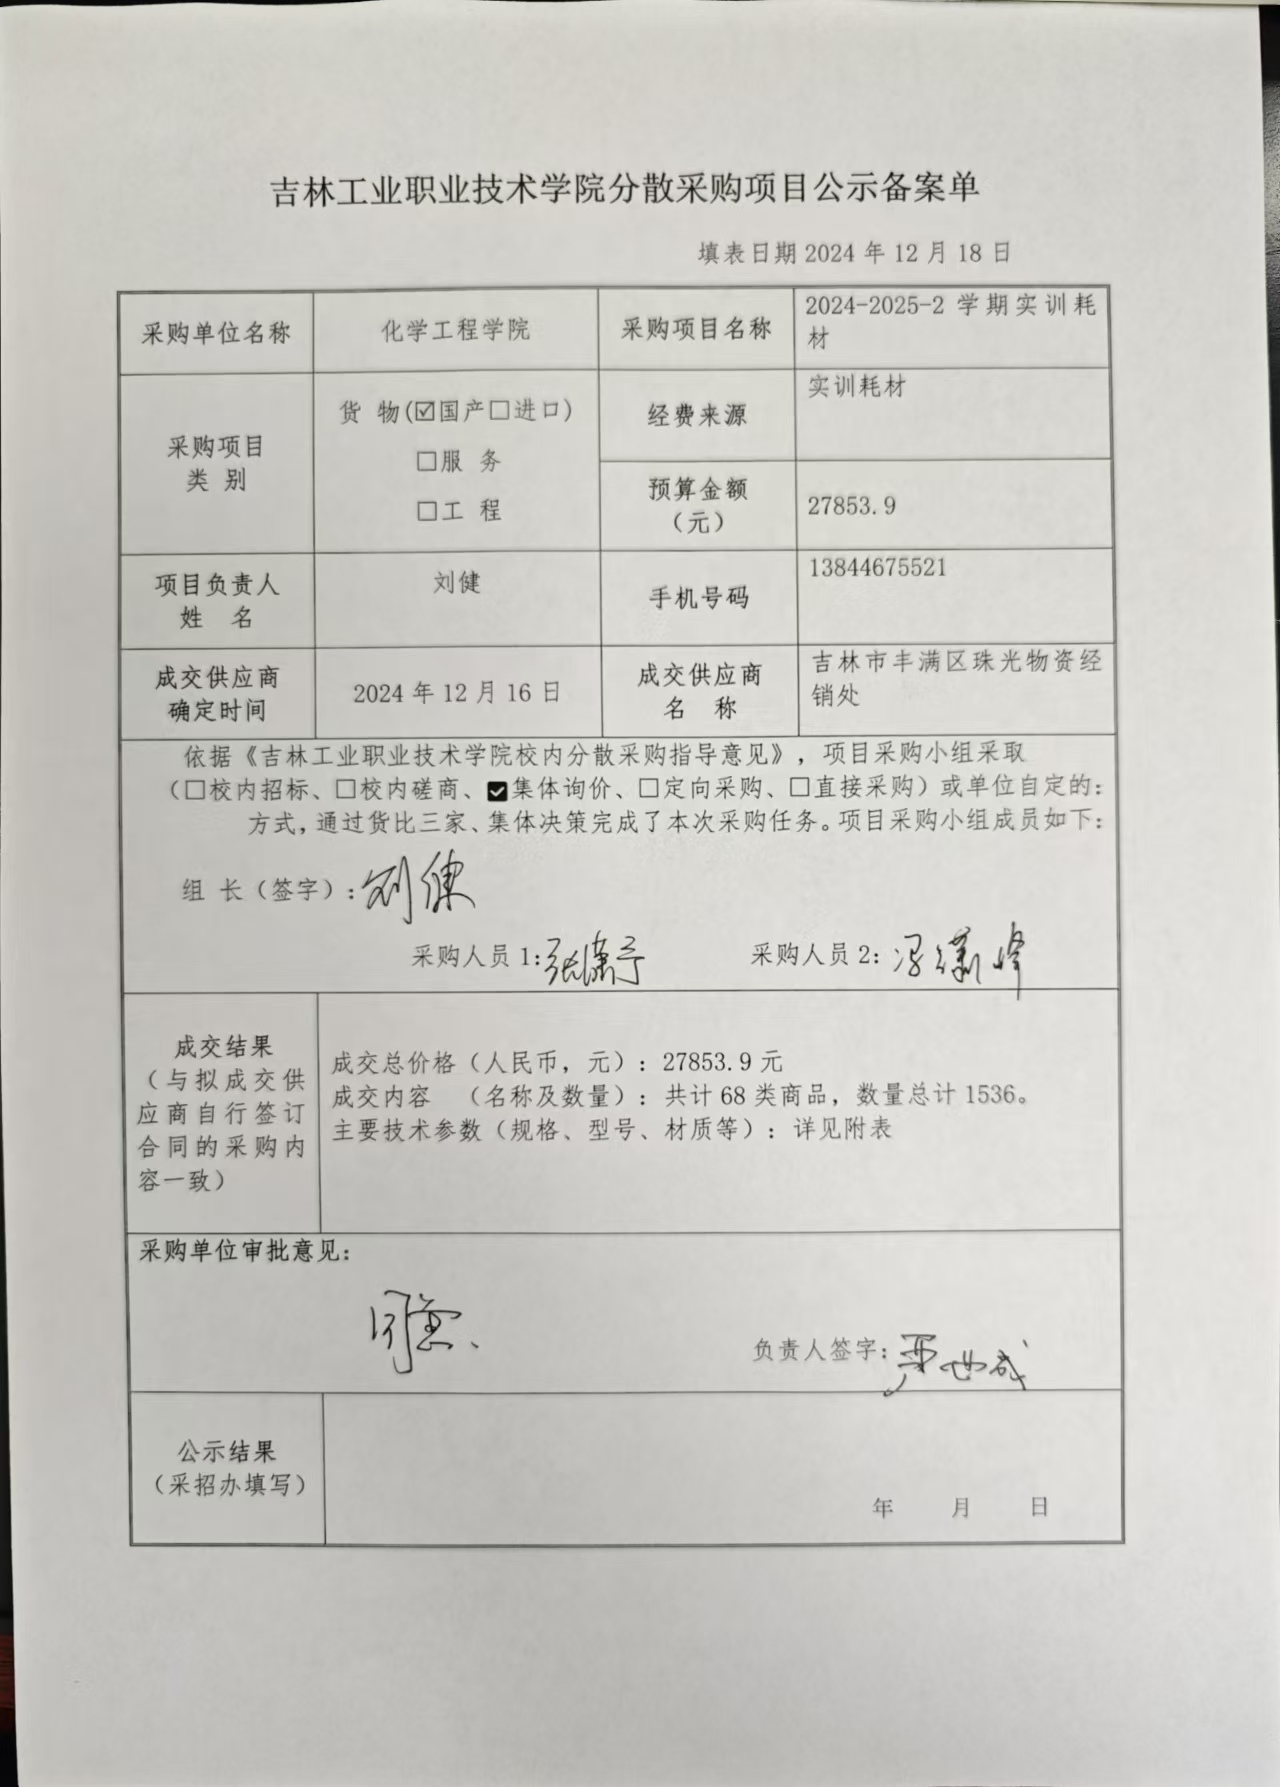 吉林工业职业技术学院分散采购项目公示备案单
填表日期 2024 年 12 月 18 日
采购单位名称
化学工程学院
采购项目名称
2024-2025-2 学期实训耗
材
采购项目
类 别
货 物(☑国产□进口)
□服 务
□工 程
经费来源
实训耗材
预算金额
（元）
27853.9
项目负责人
姓 名
刘健
手机号码
13844675521
成交供应商
确定时间
2024 年 12 月 16 日
成交供应商
名 称
吉林市丰满区珠光物资经
销处
依据《吉林工业职业技术学院校内分散采购指导意见》，项目采购小组采取
（□校内招标、□校内磋商、☑集体询价、□定向采购、□直接采购）或单位自定的：
方式，通过货比三家、集体决策完成了本次采购任务。项目采购小组成员如下：
组 长（签字）：刘健
采购人员 1：张潇予
采购人员 2：冯潇峰
成交结果
（与拟成交供
应商自行签订
合同的采购内
容一致）
成交总价格（人民币，元）：27853.9 元
成交内容 （名称及数量）：共计 68 类商品，数量总计 1536。
主要技术参数（规格、型号、材质等）：详见附表
采购单位审批意见：
同意、
负责人签字：严世成
公示结果
（采招办填写）
年 月 日